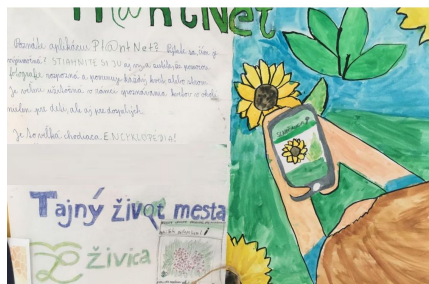 Pl@ntNet
Poznáte aplikáciu Pl@ntNet? Bijete sa, čím je
výnimočná? STIAHNITE SI JU aj vy a zistíte, že pomocou
fotografie napozná a pomenuje každý kvet alebo strom.
Je veľmi užitočná v rámci spoznávania kvetov v okolí
nielen pre deti, ale aj pre dospelých.
Je to veľká chodiaca ENCYKLOPÉDIA!
Tajný život mesta
živica